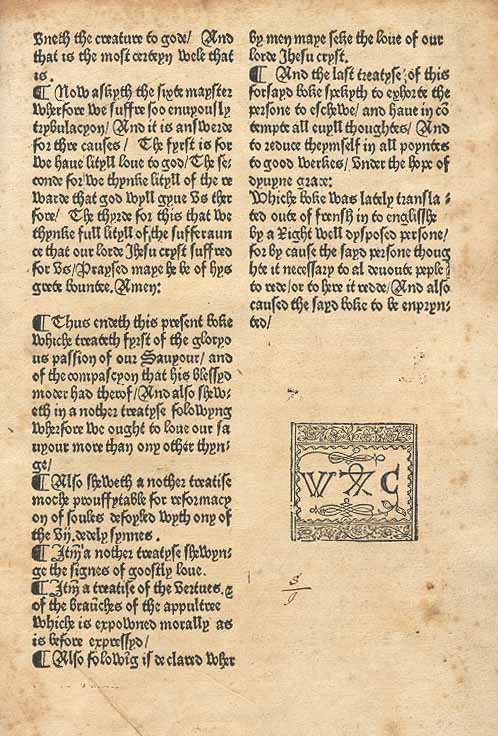 vneth the creature to gode/ And
that is the most certeyn wele that
is.
¶ Now askyth the sixte mayster
wherfore we suffre soo enuyously
trybulacyon/ And it is answerde
for thre causes/ The fyrst is for
we haue lityll love to god/ The se-
conde for/ we thynke lityll of the re
warde that god wyll gyue vs ther
fore/ The thyrde for this that we
thynke full lityll of, the sufferaun
ce that our lorde Jhesu cryst suffred
for vs/ Praysed maye he be of hys
grete bountee. Amen:
¶ Thus endeth this present boke
whiche treateth fyrst of the gloryo
us passion of our Sauyour/ and
of the compascyon that his blessyd
moder had therof/ And also shew-
eth in a nother treatyse folowyng
wherfore we ought to love our sa
uyour more than ony other thyn-
ge/
¶ Also sheweth a nother treatise
moche prouffytable for reformacy
on of soules defoyled wyth ony of
the vij. dedely synnes.
¶ Itm̄ a nother treatyse shewyn-
ge the signes of goostly love.
¶ Itm̄ a treatise of the vertues. &
of the braūches of the appultree
whiche is expowned morally as
is before expressyd/
¶ Also folowīg is declared wher
by men maye seke the loue of our
lorde Jhesu cryst.
¶ And the last treatyse of this
forsayd boke spekyth to exhorte the
persone to eschewe/ and haue in cō
tempte all euyll thoughtes/ And
to reduce theymself in all poyntes
to good werkes/ vnder the hope of
dyuyne grace:
Whiche boke was lately transla-
ted oute of frensh in to englisshe
by a Right well dysposed persone/
for by cause the sayd persone thoug
hte it necessary to al deuoute peple
to rede/ or to here it redde/ And also
caused the sayd boke to be enpryn-
ted/
W C